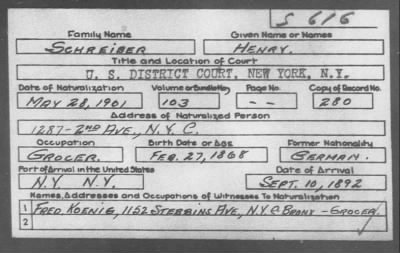 S 616
Family Name Given Name or Names
SCHREIBER HENRY.
Title and Location of Court
U. S. DISTRICT COURT, NEW YORK, N.Y.
Date of Naturalization Volume or Bundle No. Page No. Copy of Record No.
MAY 28, 1901 103 -- 280
Address of Naturalized Person
1287-2ND AVE., N.Y.C.
Occupation Birth Date or Age Former Nationality
GROCER. FEB. 27, 1868 GERMAN.
Port of Arrival in the United States Date of Arrival
N.Y. N.Y. SEPT. 10, 1892
Names, Addresses and Occupations of Witnesses To Naturalization
1 FRED KOENIG, 1152 STEBBINS AVE, N.Y.C. BRONX - GROCER.
2